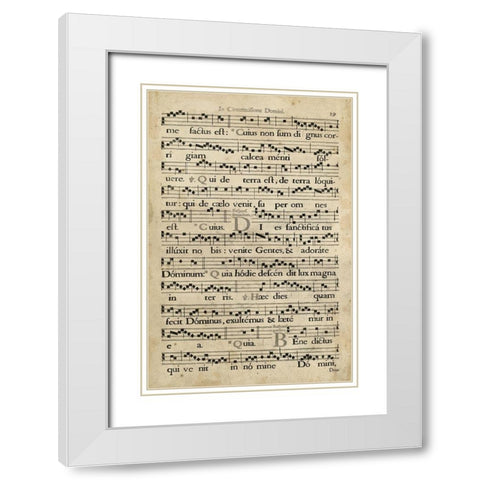 In Circumcisione Domini. 19
me factus est: Cuius non sum di gnus cor-
ri giam calcea ménti sol-
uere. Qui de terra est, de terra lóqui-
tur: qui de cælo venit, su per om nes
est. Cuius. D I es sanctificá tus
illúxit no bis: venite Gentes, & adoráte
Dóminum: Quia hódie descén dit lux magna
in ter ris. Hæc dies quam
fecit Dóminus, exultémus & læté mur in
e a. Quia. B Ene dictus
qui ve nit in nó mine Dó mini,
Deus